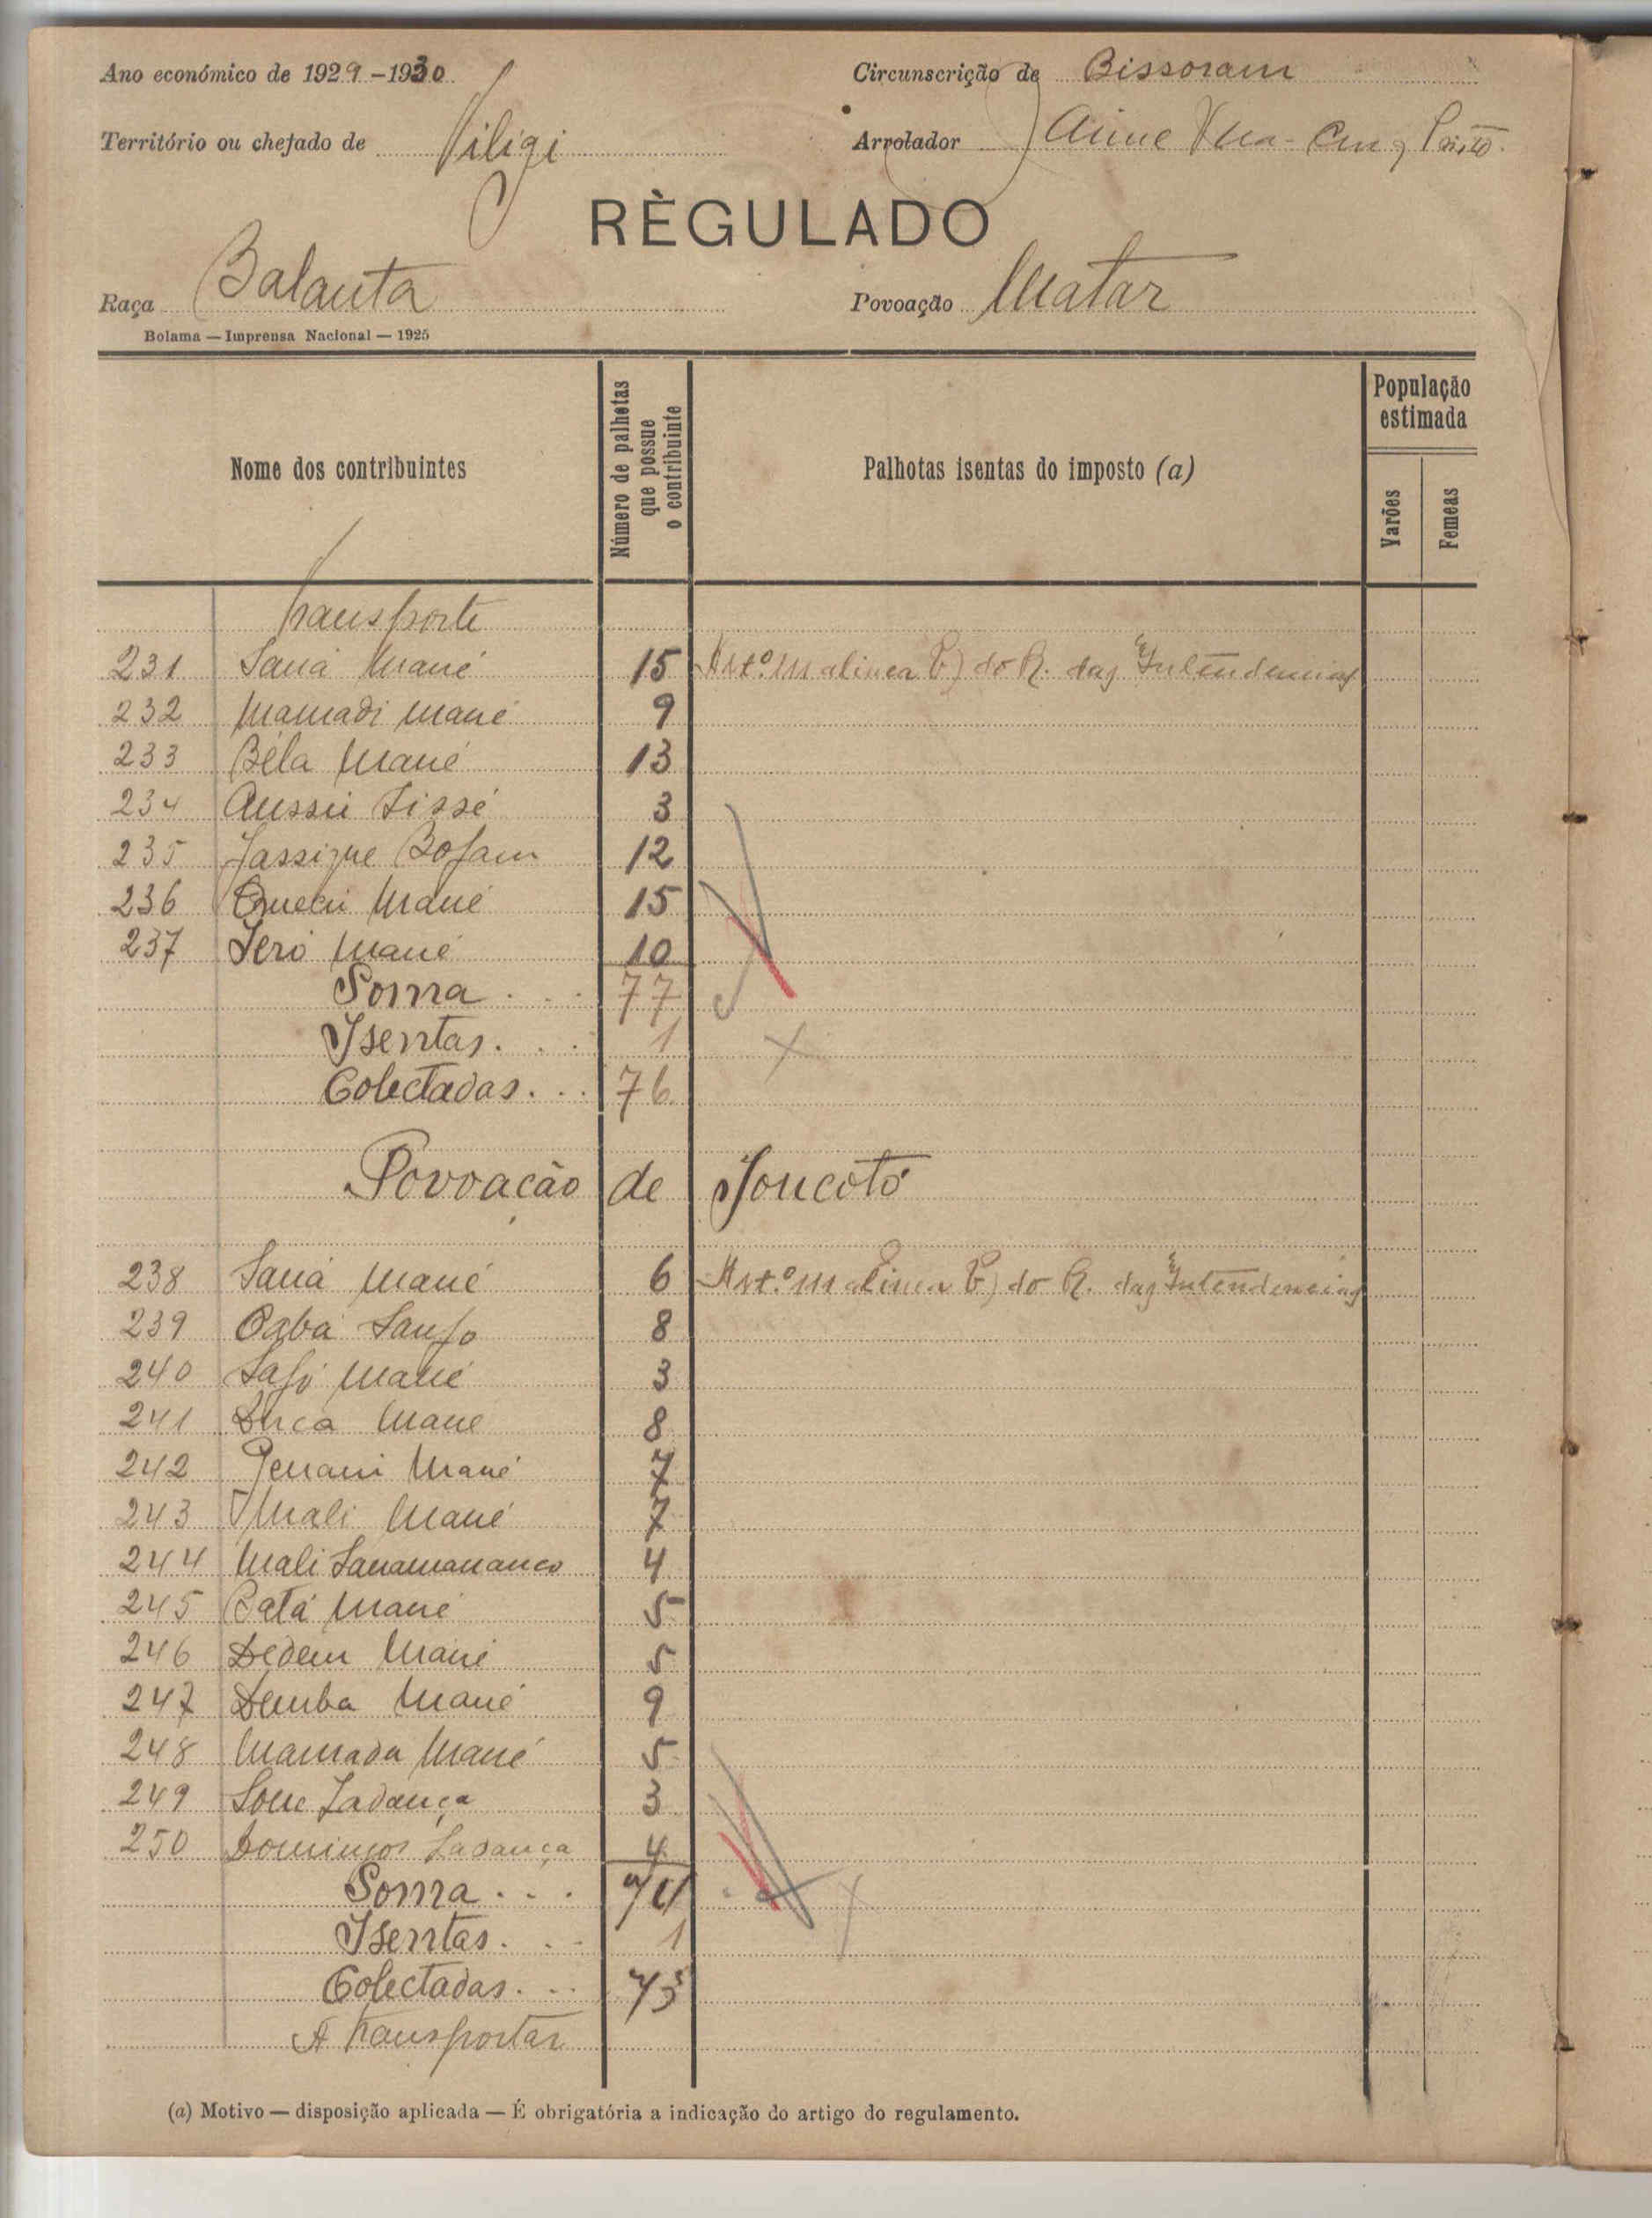 Ano económico de 1929-1930
Circunscrição de Bissoram
Território ou chefado de Viligi
Arrolador
RÈGULADO
Raça Balanta
Povoação Matar
Bolama — Imprensa Nacional — 1925
Nome dos contribuintes
Número de palhotas que possue o contribuinte
Palhotas isentas do imposto (a)
População estimada
Varões
Femeas
Transporte
231 Saná Mané 15 Art.º 111 alinea b) do R. das Intendencias
232 Mamadi Mané 9
233 Béla Mané 13
234 Aussú Sissé 3
235 Jassique Bofam 12
236 Quecú Mané 15
237 Jeró Mané 10
Soma . . . 77
Isentas . . . 1
Colectadas . . . 76
Povoacão de Joucotó
238 Saná Mané 6 Art.º 111 alinea b) do R. das Intendencias
239 Cabá Sanjo 8
240 Safi Mané 3
241 Duca Mané 8
242 Mané 7
243 Mali Mané 7
244 Mali Sanamananco 4
245 Batá Mané 5
246 Dedem Mané 5
247 Demba Mané 9
248 Mamadu Mané 5
249 Sadança 3
250 Domingos Sadança 4
Soma . . . 74
Isentas . . . 1
Colectadas . . . 73
A transportar
(a) Motivo — disposição aplicada — É obrigatória a indicação do artigo do regulamento.